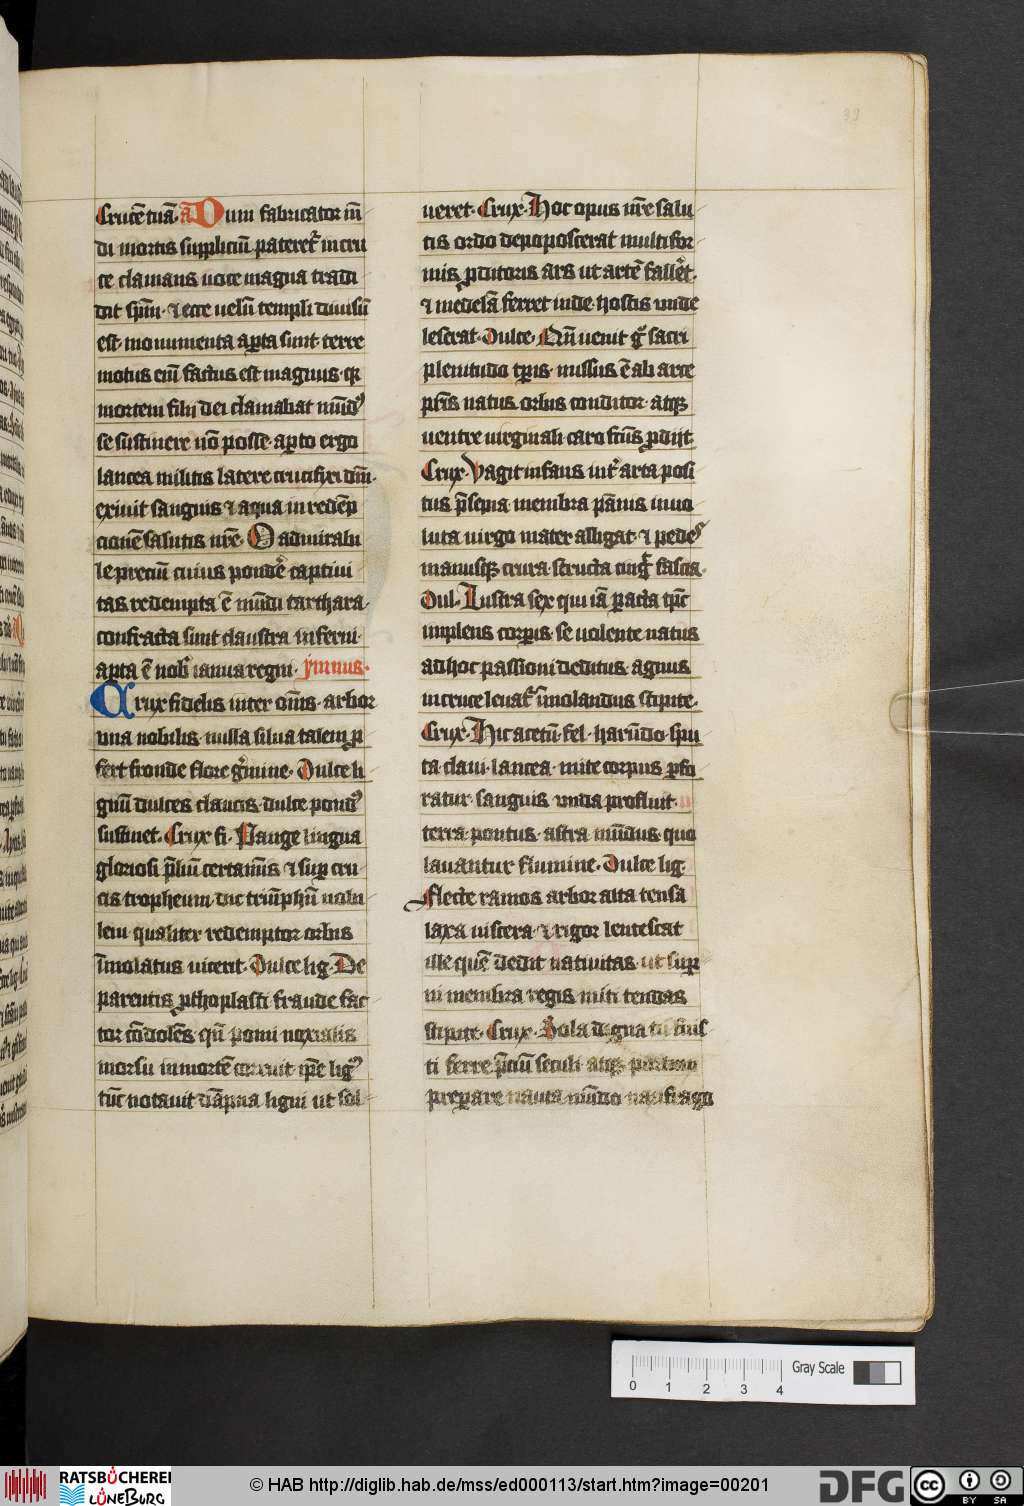 39
Crucē tuā. a Dum fabricator mū
di mortis suppliciū pateretr̄ in cru
ce clamans uoce magna tradi
dit spm̄. et ecce uelū templi diuisū
est. monumenta apta sunt. terre
motus em̄ factus est magnus. qr
mortem filii dei clamabat mūdꝰ
se sustinere nō posse. apto ergo
lancea militis latere crucifixi dm̄.
exiuit sanguis et aqua in redēp
cionē salutis nr̄e. O admirabi
le preciū cuius pondē captiui
tas redempta ē mūdi tarthara
confracta sunt claustra inferni.
apta ē nob̄ ianua regni. ymnus.
Crux fidelis inter om̄s. arbor
vna nobilis. nulla silua talem ꝓ
fert fronde flore gm̄ine. Dulce li
gnū dulces clauos. dulce pondꝰ
sustinet. Crux fi. Pange lingua
gloriosi pliū certamīs et sup cru
cis tropheum. dic triūphū nobi
lem qualiter redemptor orbis
īmolatus uicerit. Dulce lig. De
parentis ꝓthoplasti fraude fac
tor cōdolēs qn̄ pomi noxialis
morsu in mortē corruit. ipe ligꝰ
tūc notauit dāpna ligni ut sol
ueret. Crux. Hoc opus nr̄e salu
tis ordo depoposcerat multifor
mis ꝓditoris ars ut artē falleret.
et medelā ferret inde hostis unde
leserat. Dulce. Qn̄ uenit g sacri
plenitudo tpis. missus ē ab arce
pris natus orbis conditor. atqꝫ
uentre uirginali caro fcūs ꝓdijt.
Crux. Vagit infans int̄ arta posi
tus psepia membra pānis inuo
luta uirgo mater alligat. et pedes
manusqꝫ crura. stricta cinḡ fascia.
Dul. Lustra sex qui iā pacta tpc
implens corpis. se uolente natus
ad hoc passioni deditus. agnus
in cruce leuat īmolandus stipite.
Crux. Hic acetū. fel. harūdo. spu
ta claui. lancea. mite corpus pfo
ratur. sanguis unda profluit.
terra. pontus. astra. mūdus. quo
lauantur flumine. Dulce lig.
Flecte ramos arbor alta tensa
laxa uiscera. et rigor lentescat
ille quē dedit natiuitas. ut sup
ni membra regis miti tendas
stipite. Crux. Sola digna tu fuis
ti ferre pciū seculi atqꝫ portum
preparare nauta mūdo naufrago
0 1 2 3 4
Gray Scale
RATSBÜCHEREI
LÜNEBURG
© HAB http://diglib.hab.de/mss/ed000113/start.htm?image=00201
DFG
cc
BY SA